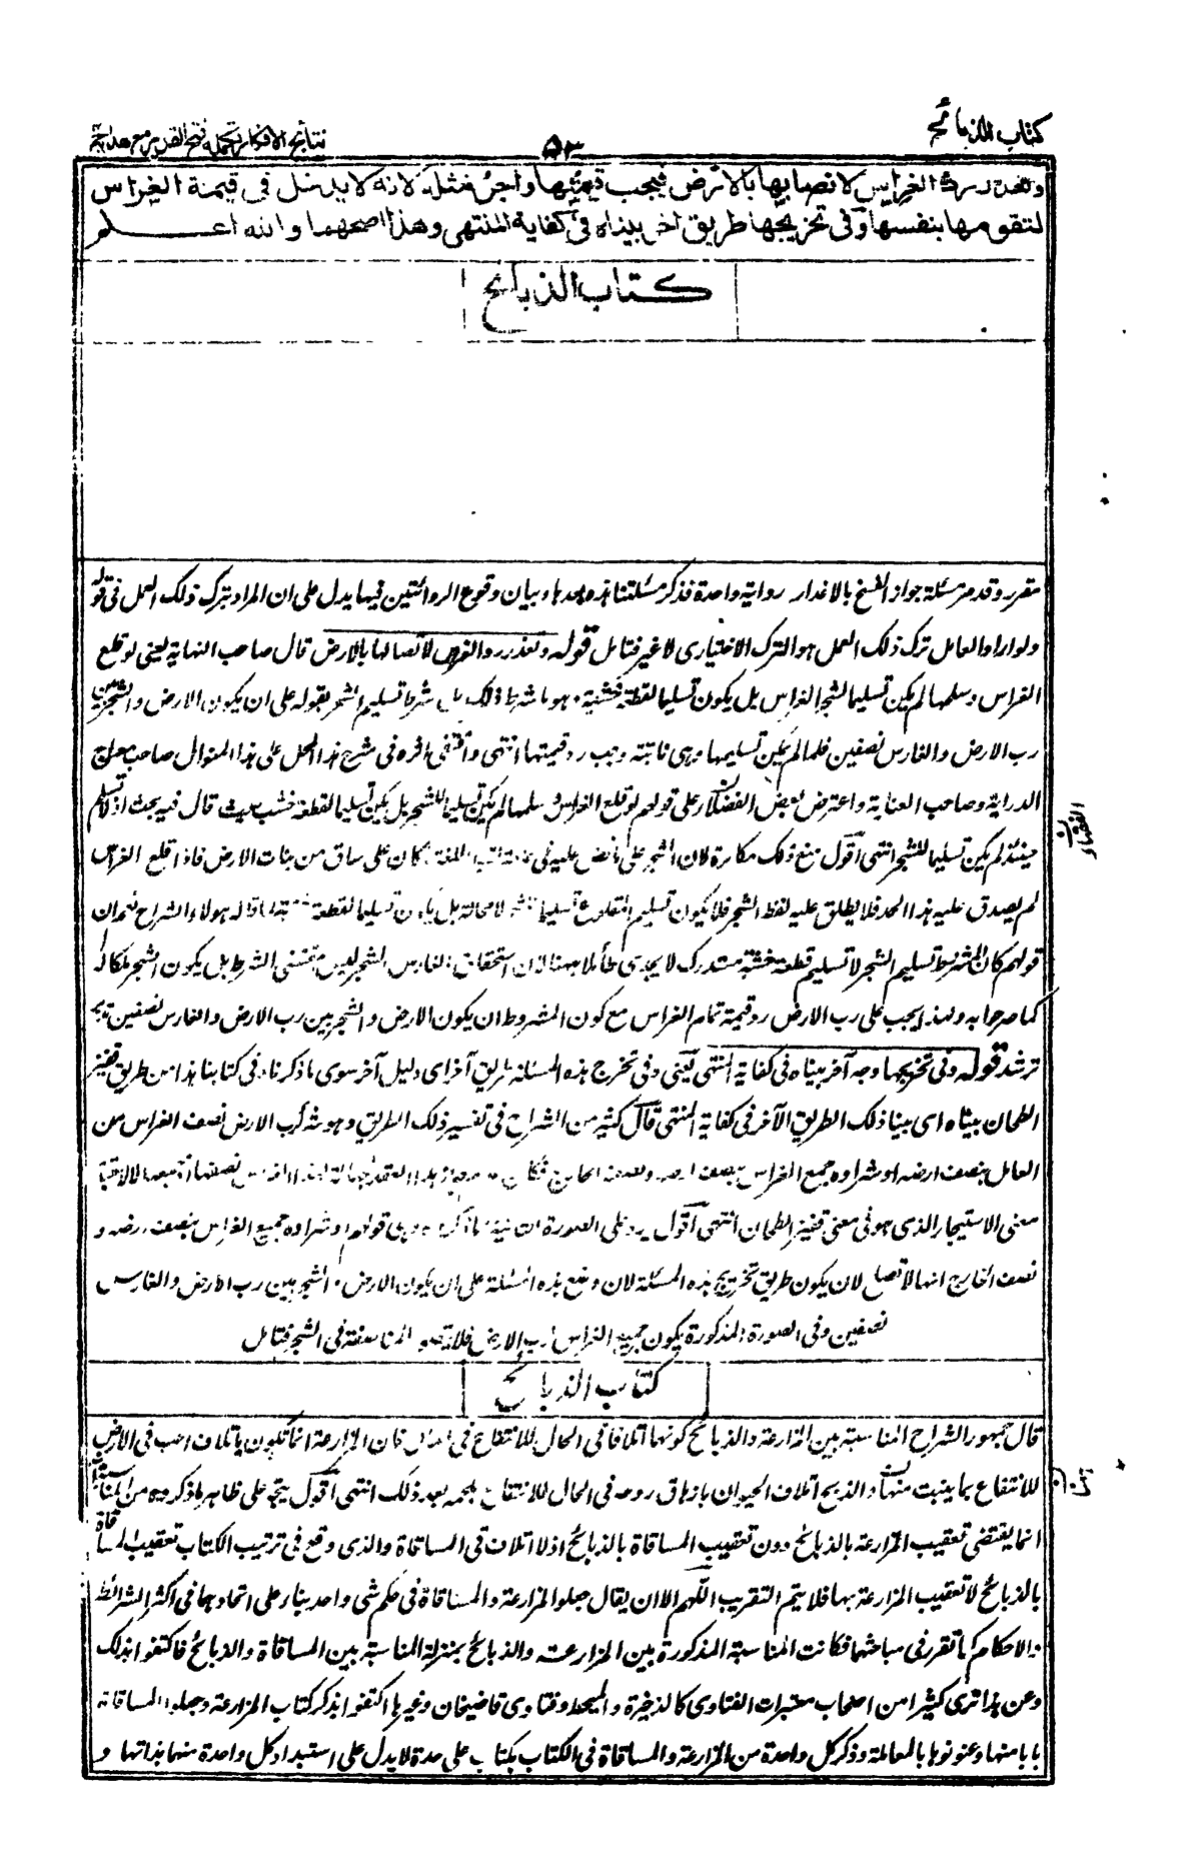 كتاب الذبائح
٥٣
نتائج الافكار تكملة فتح القدير مع هداية
وتعذر رد الغراس لاتصالها بالارض فيجب قيمتها واجر مثله لانه لا يدخل في قيمة الغراس
لتقومها بنفسها وفي تخريجها طريق اخر بيناه في كفاية المنتهى وهذا اصحهما والله اعلم
كتاب الذبائح
مقرر وقد مر مسئلة جواز الفسخ بالاعذار رواية واحدة فذكر مسئلتنا هذه وبيان وقوع الروايتين فيها يدل على ان المراد بترك ذلك العمل في قوله
ولو اراد العامل ترك ذلك العمل هو الترك الاختياري لا غير فتامل قوله وتعذر رد الغراس لاتصالها بالارض قال صاحب النهاية يعني لو قلع
الغراس وسلمها لم يكن تسليما لشجر الغراس بل يكون تسليما لقطعة خشبة وهو ما شرط ذلك بل شرط تسليم الشجر بقوله على ان يكون الارض والشجر بين
رب الارض والغارس نصفين فلما لم يمكن تسليمها وهي نابتة وجب رد قيمتها انتهى واقتفى اثره في شرح هذا المحل على هذا المنوال صاحب معراج
الدراية وصاحب العناية واعترض بعض الفضلاء على قولهم لو قلع الغراس وسلمها لم يكن تسليما للشجر بل يكون تسليما لقطعة خشب حيث قال فيه بحث اذ لا نسلم
حينئذ لم يكن تسليما للشجر انتهى اقول منع ذلك مكابرة لان الشجر على ما نص عليه في كتب اللغة ما كان على ساق من نبات الارض فاذا قلع الغراس
لم يصدق عليه هذا الحد فلا يطلق عليه لفظ الشجر فلا يكون تسليم المقلوع تسليما للشجر لا محالة بل يكون تسليما لقطعة خشبة كما قاله هولاء الشراح نعم ان
قولهم كان المشروط تسليم الشجر لا تسليم قطعة خشبة مستدرك لا يجدي طائلا ههنا لان استحقاق الغارس الشجر ليس بمقتضى الشرط بل يكون الشجر ملكا له
كما صرحوا به ولهذا يجب على رب الارض رد قيمة تمام الغراس مع كون المشروط ان يكون الارض والشجر بين رب الارض والغارس نصفين تدبر
ترشد قوله وفي تخريجها وجه آخر بيناه في كفاية المنتهى يعني وفي تخريج هذه المسئلة طريق آخر اي دليل آخر سوى ما ذكرناه في كتابنا هذا من طريق قفيز
الطحان بيناه اي بينا ذلك الطريق الآخر في كفاية المنتهى قال كثير من الشراح في تفسير ذلك الطريق وهو شراء رب الارض نصف الغراس من
العامل بنصف ارضه او شراءه جميع الغراس بنصف ارضه ونصف الخارج فكان
معنى الاستيجار الذي هو في معنى قفيز الطحان انتهى اقول يرد على الصورة الثانية مما ذكروه وهي قولهم او شراءه جميع الغراس بنصف ارضه و
نصف الخارج انها لا تصلح لان يكون طريق تخريج هذه المسئلة لان وضع هذه المسئلة على ان يكون الارض والشجر بين رب الارض والغارس
نصفين وفي الصورة المذكورة يكون جميع الغراس لرب الارض فلا يتصور المناصفة في الشجر فتامل
كتاب الذبائح
قال جمهور الشراح المناسبة بين المزارعة والذبائح كونهما اتلافا في الحال للانتفاع في المآل فان المزارعة انما تكون باتلاف الحب في الارض
للانتفاع بما ينبت منها والذبح اتلاف الحيوان بازهاق روحه في الحال للانتفاع بلحمه بعد ذلك انتهى اقول يتجه على ظاهر ما ذكروه من المناسبة انه
انما يقتضى تعقيب المزارعة بالذبائح دون تعقيب المساقاة بالذبائح اذ لا اتلاف في المساقاة والذي وقع في ترتيب الكتاب تعقيب المساقاة
بالذبائح لا تعقيب المزارعة بها فلا يتم التقريب اللهم الا ان يقال جعلوا المزارعة والمساقاة في حكم شي واحد بناء على اتحادهما في اكثر الشرائط
والاحكام كما تقرر في مباحثها فكانت المناسبة المذكورة بين المزارعة والذبائح بمنزلة المناسبة بين المساقاة والذبائح فاكتفوا بذلك
وعن هذا ترى كثيرا من اصحاب معتبرات الفتاوى كالذخيرة والمحيط وفتاوى قاضيخان وغيرها اكتفوا بذكر كتاب المزارعة وجعلوا المساقاة
بابا منها وعنونوها بالمعاملة وذكر كل واحدة من المزارعة والمساقاة في الكتاب بكتاب على حدة لا يدل على استبداد كل واحدة منها بذاتها و